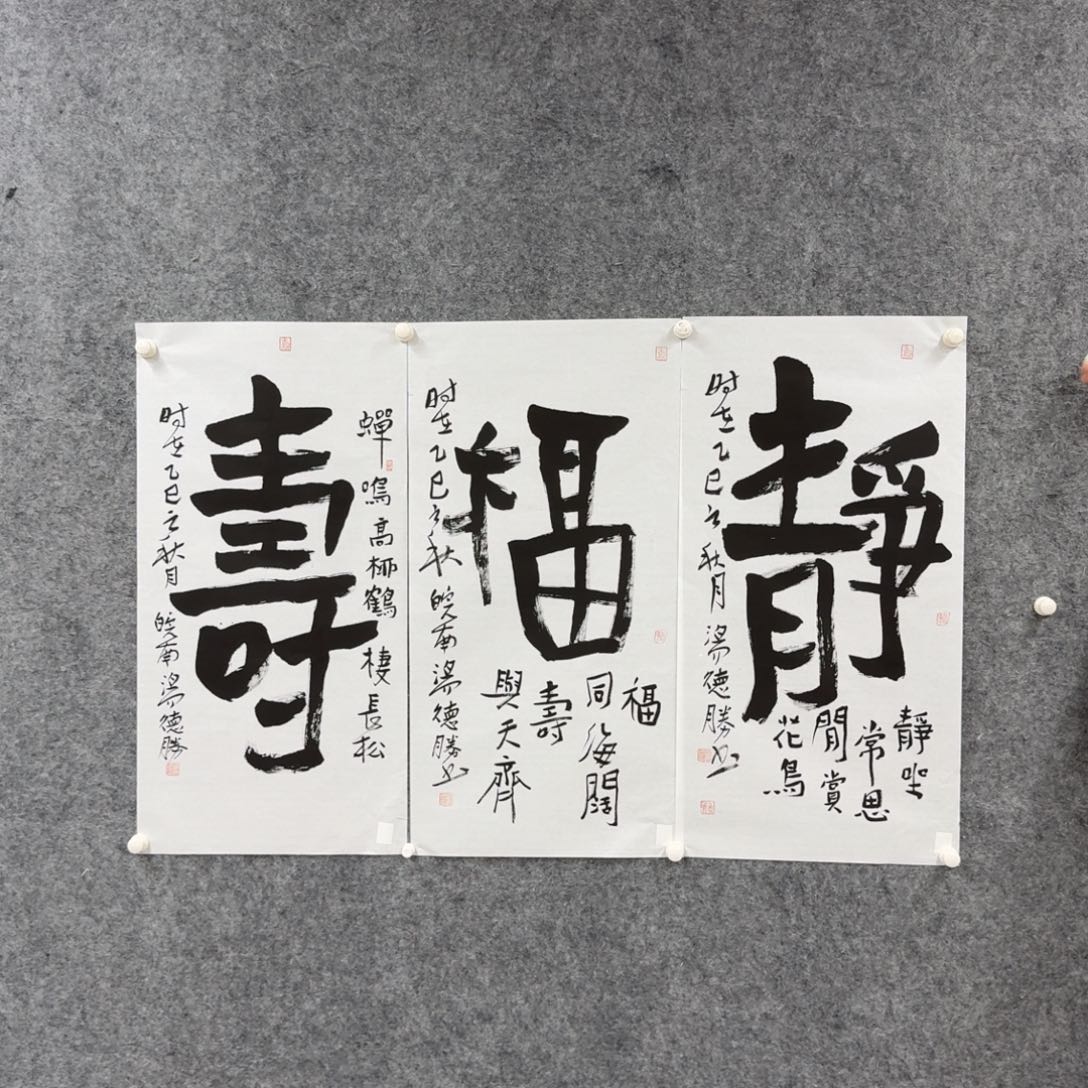 靜
靜坐
常思
閒賞
花鳥
时在乙巳之秋月湯德勝书
福
福
同海闊
壽
與天齊
时在乙巳之秋皖南湯德勝书
壽
蟬鳴高柳鶴棲長松
时在乙巳之秋月皖南湯德勝